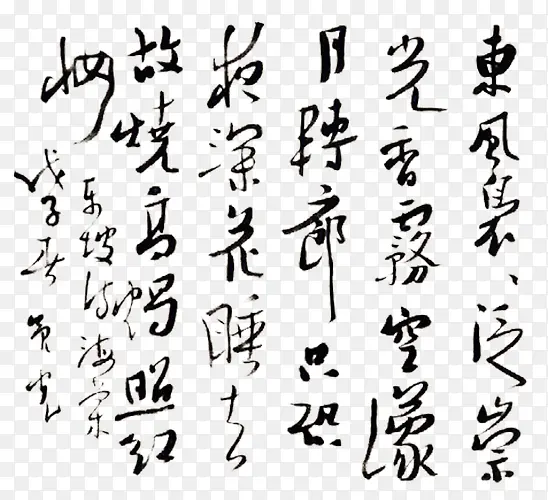 東風裊、泛崇
光香霧空濛
月轉廊只恐
夜深花睡去
故燒高燭照紅
妝
东坡詩海棠
戊子春